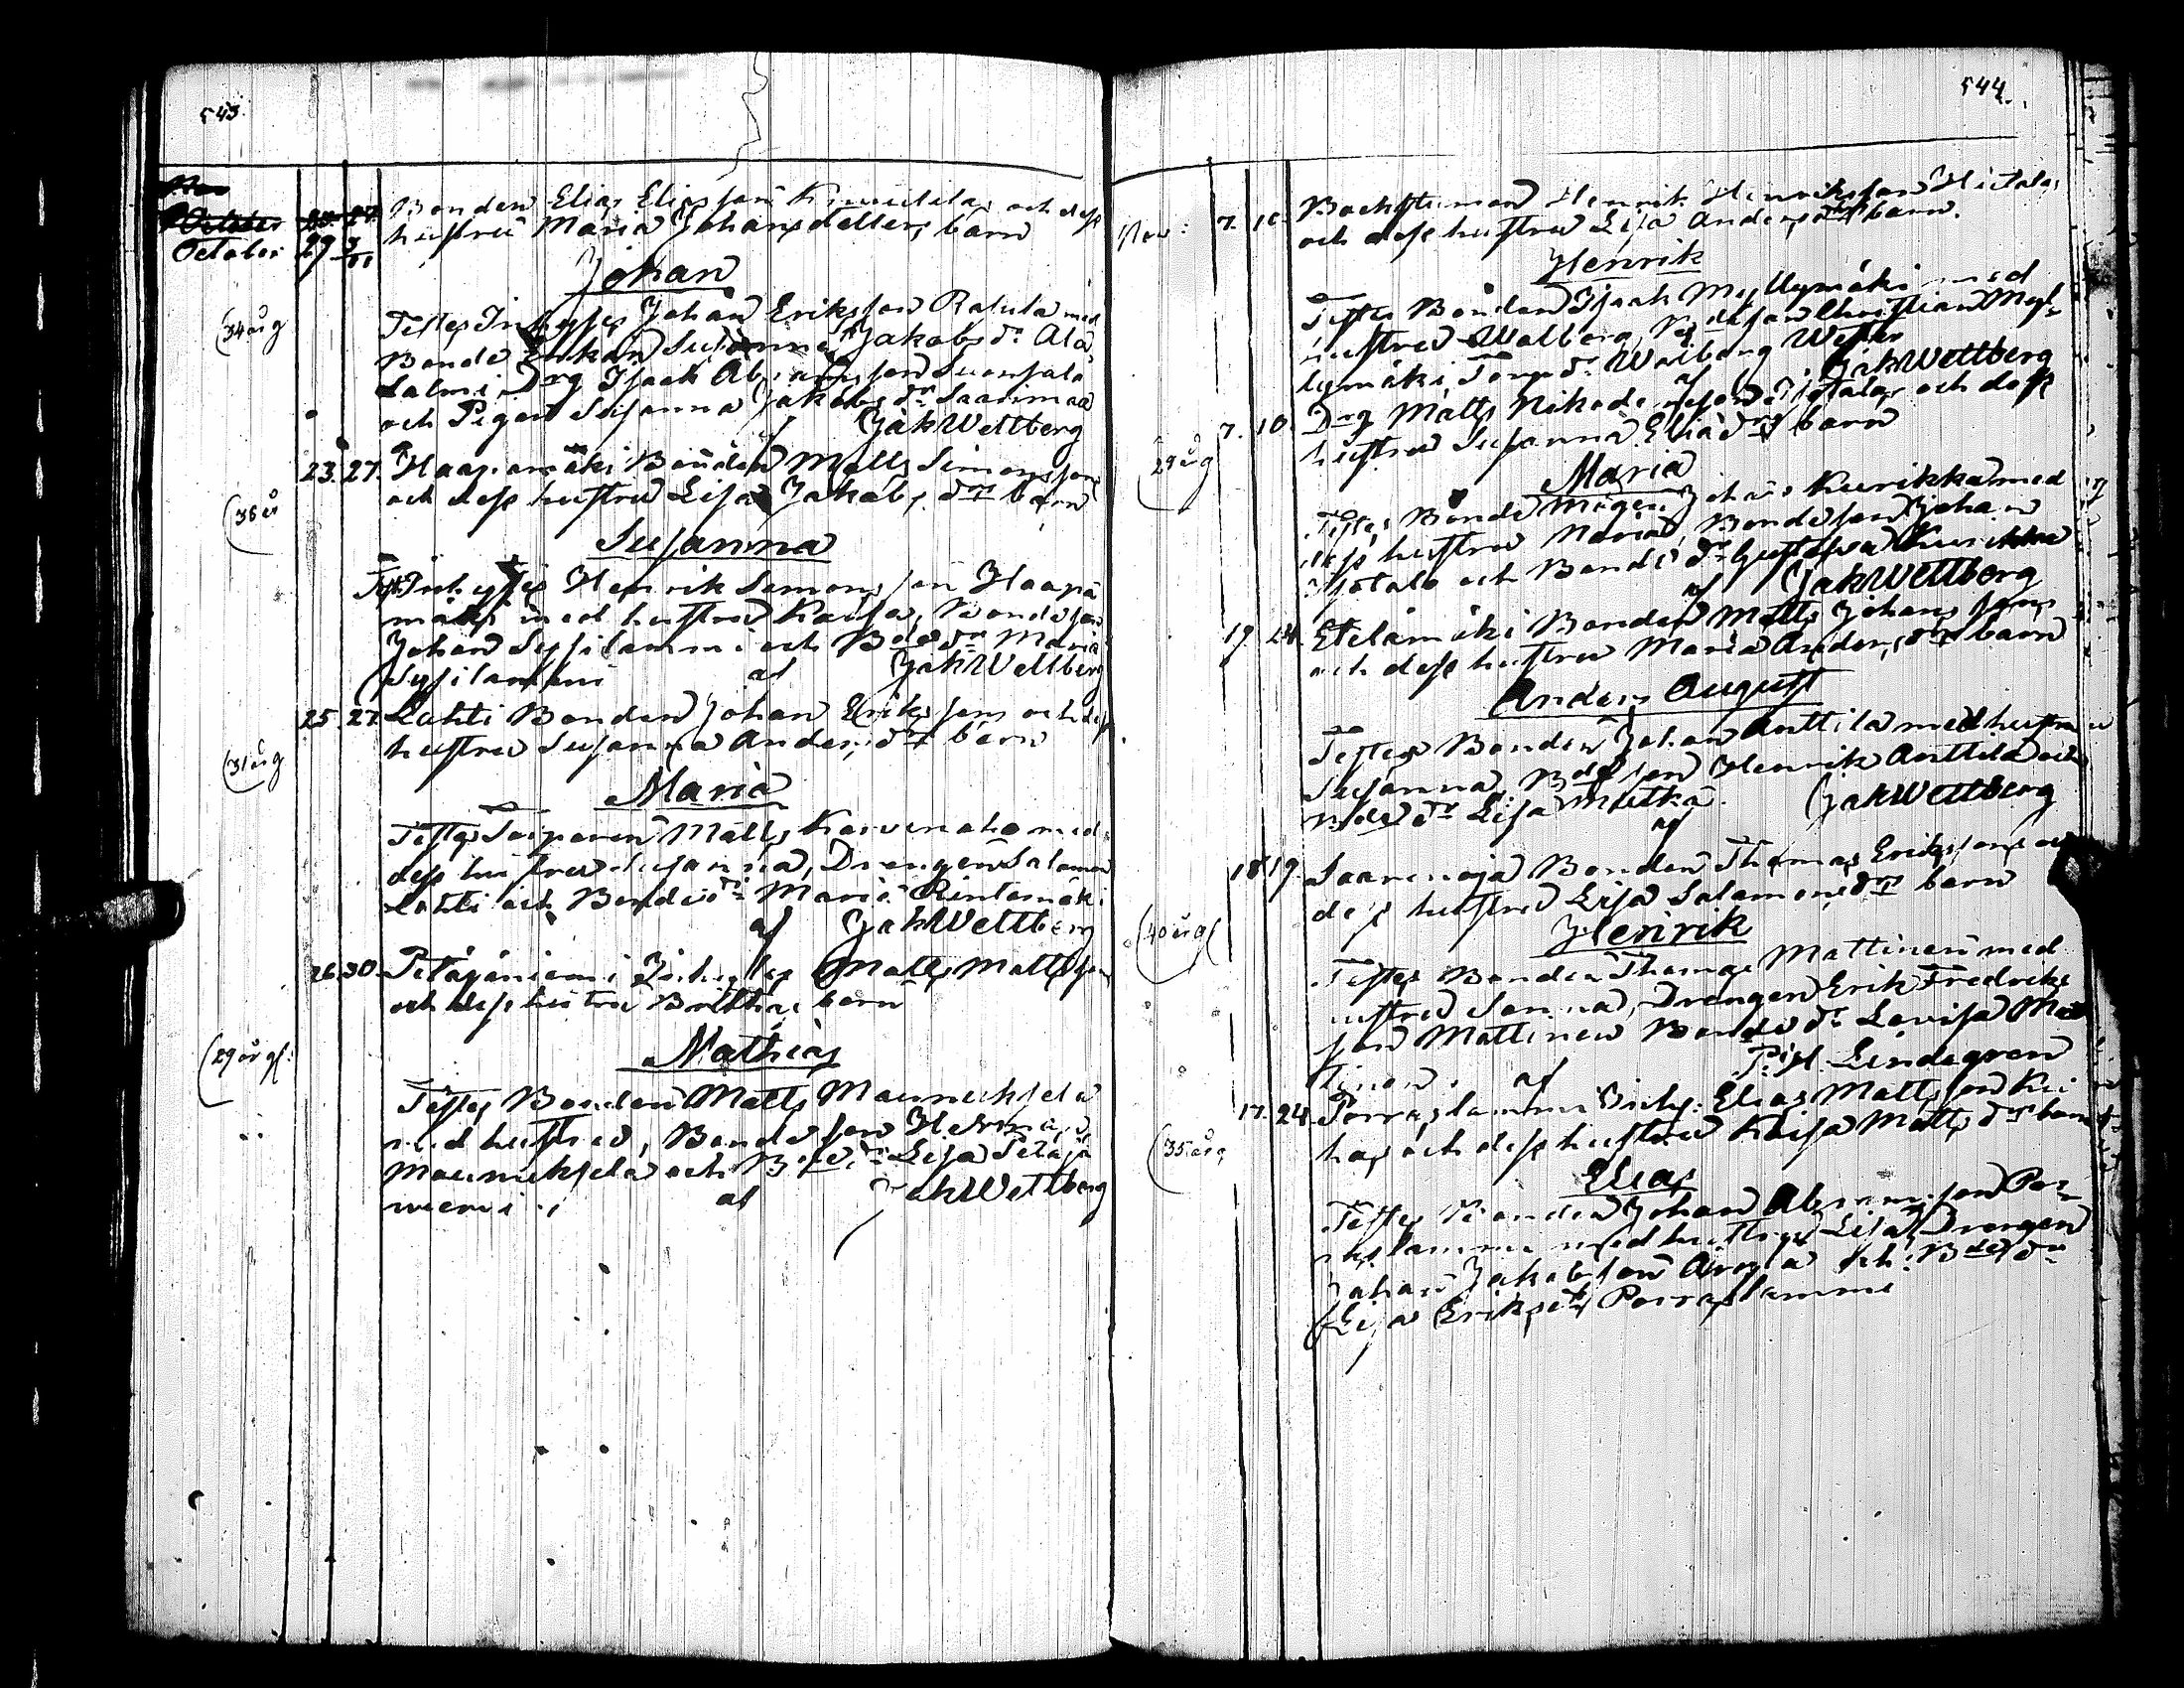 543.
October 29 3/11 Bonden Elias Eliasson och dess
hustru Maria Johansdotters barn
Johan
(34 årg Testes Inhyses Johan Eriksson Ratula med
Bonde Susanna Jakobs dr Ala
Salmi, Drg Isack Abramsson
och Pigan Susanna Jakobs dr Saarimaa
af JakWettberg
23. 27. Haapamäki Bonden Matts Simonssons
(36 år och dess hustru Lisa Jakobs drs barn
Susanna
Test. Inhyses Henrik Simonsson Haapa
mäki med hustru Kaisa, Bondeson
Johan Sysilammi och Bde dr Maria
Sysilammi af JakWettberg
25. 27. Lahti Bonden Johan Erikssons och dess
hustru Susanna Anders drs barn
(31 årg Maria
Testes Torparen Matts Karvenaho med
dess hustru Susanna, Drengen Salomon
Lahti och Bonde dr Maria Rintamäki
af JakWettberg
26. 30. Petäjäniemi Inhyses Matts Mattsson
och dess hustru Brittas barn
(29 årg: Mathias
Testes Bonden Matts Maunuksela
med hustru, Bondeson Herman
Maunuksela och Bde dr Lisa Petäjä
niemi. af JakWettberg
544.
Nov: 7. 10. Backstuman Henrik Henriksson Hietalas
och dess hustru Lisa Anders drs barn.
Henrik
Testes Bonden Isaak Myllymäki med
hustru Walborg, Bdeson Christian Myl-
lymäki, Torp dr Walborg
af JakWettberg
7. 10. Drg Matts Nikodemusson Isotalos och dess
(29 årg hustru Susanna Elias drs barn
Maria
Testes Bonde Mågen Johan Kurikka med
dess hustru Maria, Bondeson Johan
Isotalo och Bonde dr Gustava Kurikka
af JakWettberg
19. 24. Etelämäki Bonden Matts Johanssons
och dess hustru Maria Anders drs barn
Anders August
Testes Bonden Johan Anttila med hustru
Susanna, Bdeson Henrik Anttila och
Bde dr Lisa Mutka.
af JakWettberg
18 19. Saarenoja Bonden Thomas Erikssons och
dess hustru Lisa Salomons drs barn
(40 årg Henrik
Testes Bonden Thomas Mattinen med
hustru Sanna, Drengen Erik Fredriks
son Mattinen Bonde dr Lovisa Mat
tinen. af Lindegren
17. 24. Porraslammi Inhys: Elias Mattsson
(35 årg has och dess hustru Kaisa Matts drs barn
Elias
Testes Bonden Johan Abramsson Por-
raslammi med hustru Lisa, Drengen
Johan Jakobsson och Bde dr
Lisa Eriks dr Porraslammi